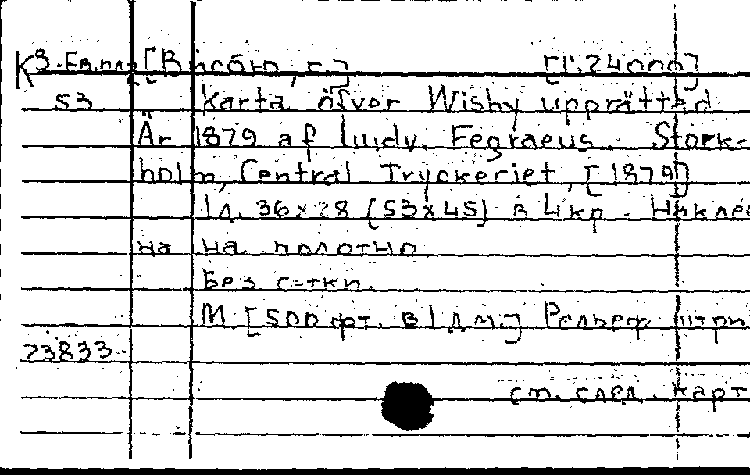 К 3-Ев.пл [Висбю, г.] [1:24000]
53 Karta öfver Wisby upprättad
År 1879 af Ludv. Fegraeus. Stock-
holm, Central Tryckeriet, [1879]
1 л. 36x28 (53x45) в 4 кр. Накле
на на полотно
Без сетки.
М [500 фт. в 1 дм.] Рельеф штри
23833
см. след. карт